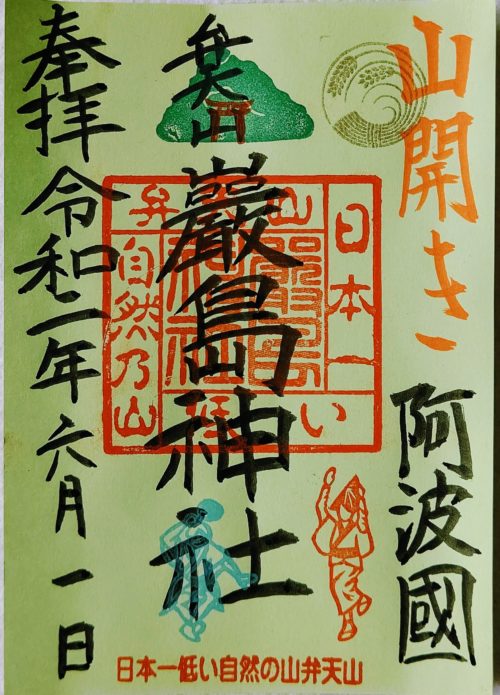 山開き
阿波國
弁天山
巖島神社
奉拝
令和二年六月一日
日本一
低い
弁天山
自然乃山
日本一低い自然の山弁天山